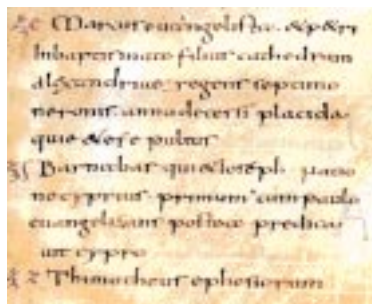 Marcus euangelista & petri
in baptismate filius cathedram
alexandrine regens septimo
neronis anno decessit placida
quie & ose pultus
Barnabas qui & ioseph natio
ne cyprius primum cum paulo
euangelizans postea predica
uit cypro
Thimotheus ephesiorum